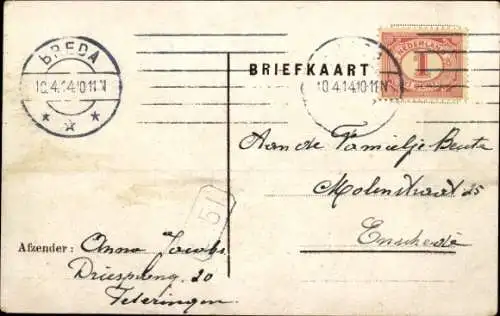 BREDA
10.4.14.10-11 N
BRIEFKAART
10.4.14.10-11 N
NEDERLAND
1
Aan de Familje Beute
Molenstraat 25
Enschede
51
Afzender: Anna Jacobs
Driesprong 20
Teteringen